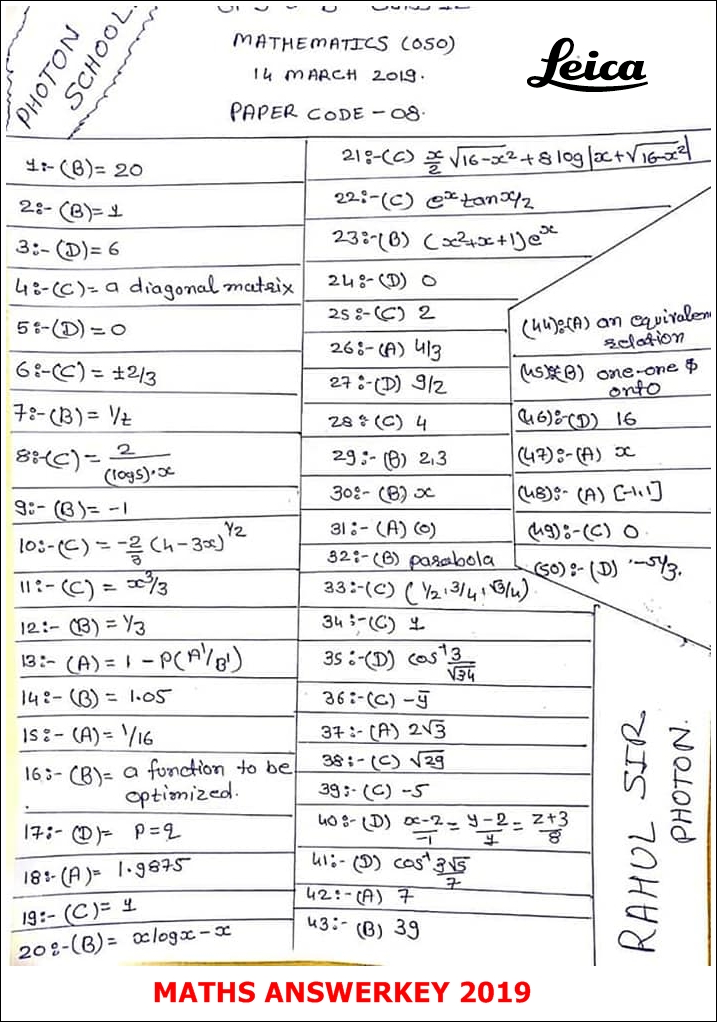 PHOTON
SCHOOL
MATHEMATICS (050)
14 MARCH 2019.
PAPER CODE - 08.
Leica
1:- (B) = 20
2:- (B) = 1
3:- (D) = 6
4:- (C) = a diagonal matrix
5:- (D) = 0
6:- (C) = ±2/3
7:- (B) = 1/t
8:- (C) = 2/(log5)·x
9:- (B) = -1
10:- (C) = -2/3 (4-3x)^1/2
11:- (C) = x³/3
12:- (B) = 1/3
13:- (A) = 1 - P(A'/B')
14:- (B) = 1.05
15:- (A) = 1/16
16:- (B) = a function to be
optimized.
17:- (D) = P=q
18:- (A) = 1.9875
19:- (C) = 1
20:- (B) = xlogx-x
21:- (C) x/2 √16-x² + 8 log|x+√16-x²|
22:- (C) e^x tan x/2
23:- (B) (x²+x+1)e^x
24:- (D) 0
25:- (C) 2
26:- (A) 4/3
27:- (D) 9/2
28:- (C) 4
29:- (B) 2,3
30:- (B) x
31:- (A) (0)
32:- (B) parabola
33:- (C) (1/2, 3/4, √3/4)
34:- (C) 1
35:- (D) cos⁻¹ 3/√34
36:- (C) -j̄
37:- (A) 2√3
38:- (C) √29
39:- (C) -5
40:- (D) x-2/-1 = y-2/1 = z+3/8
41:- (D) cos⁻¹ 3√5/7
42:- (A) 7
43:- (B) 39
(44):- (A) an equivalen
relation
(45) (B) one-one &
onto
(46):- (D) 16
(47):- (A) x
(48):- (A) [-1,1]
(49):- (C) 0
(50):- (D) -5π/3.
RAHUL SIR
PHOTON.
MATHS ANSWERKEY 2019